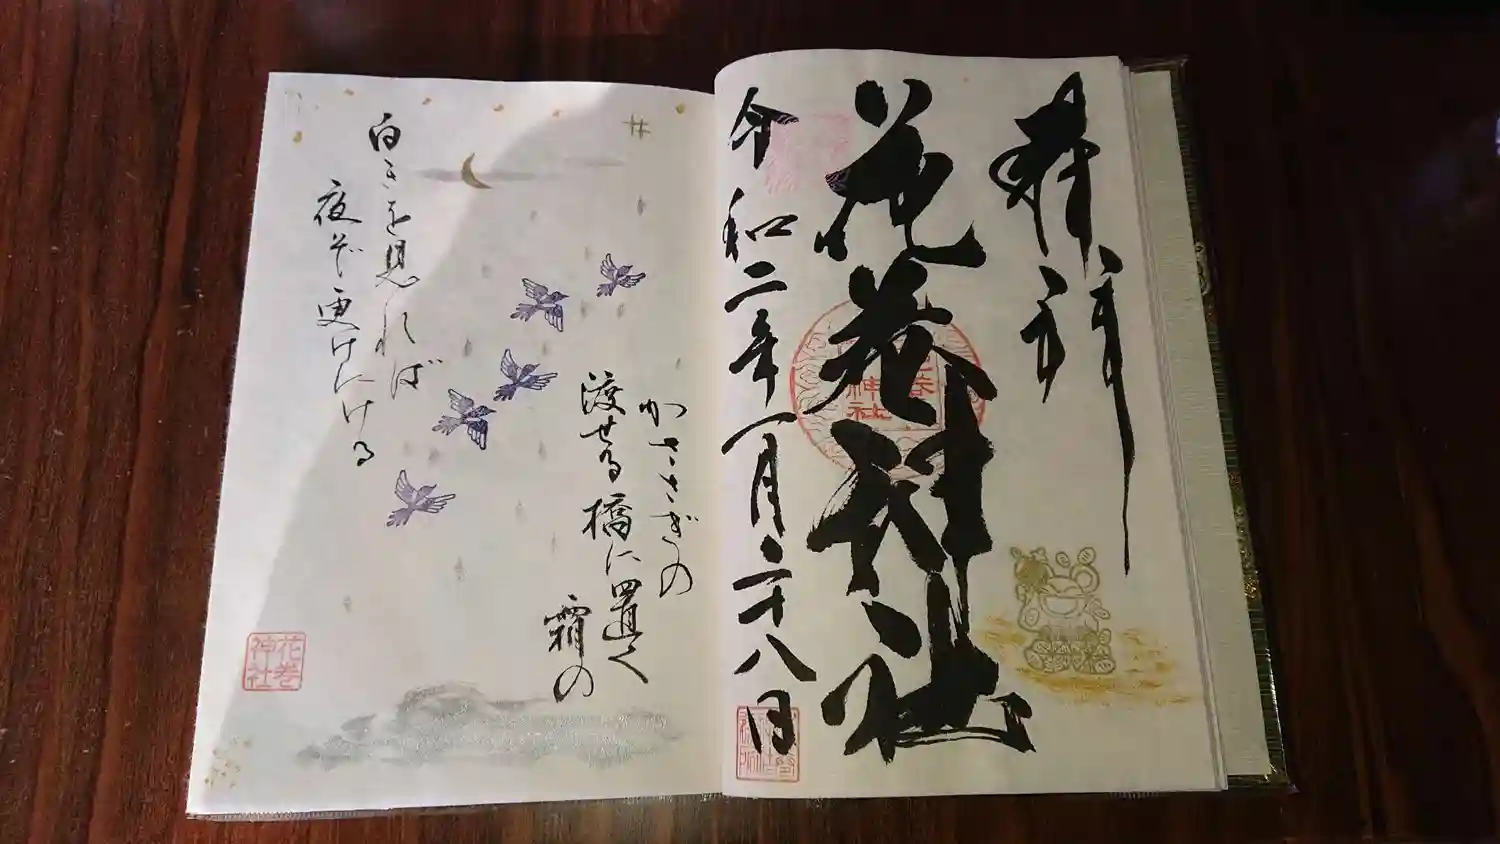 奉拝
花巻神社
令和二年一月二十八日
かささぎの
渡せる橋に置く
霜の
白きを見れば
夜ぞ更けにける
花巻
神社